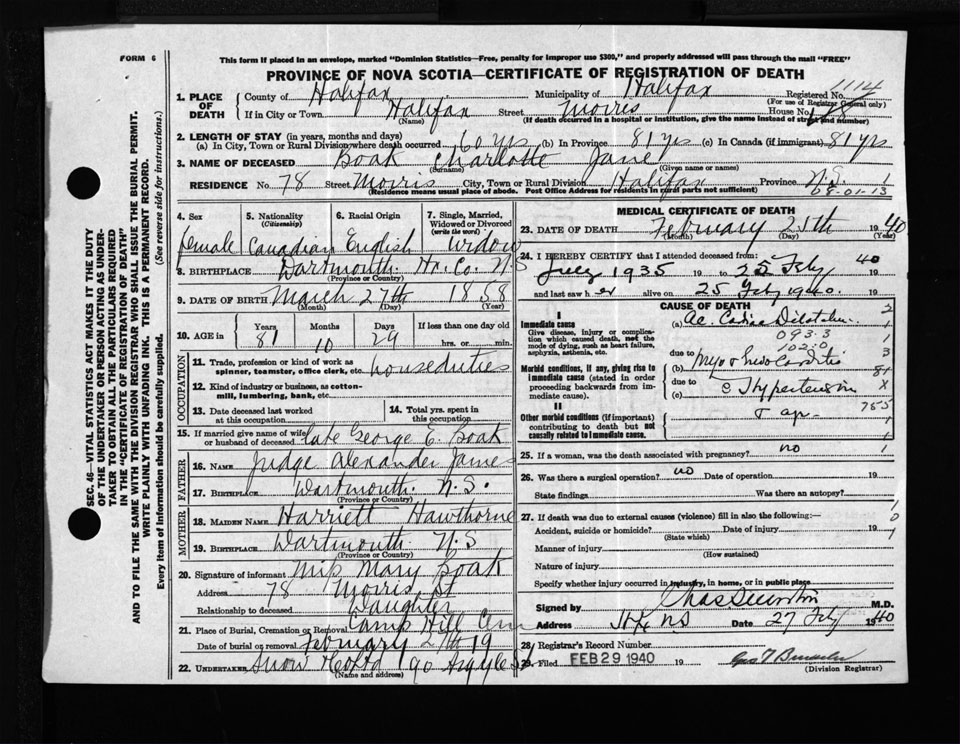 FORM 6
This form if placed in an envelope, marked "Dominion Statistics—Free, penalty for improper use $300," and properly addressed will pass through the mail "FREE"
PROVINCE OF NOVA SCOTIA—CERTIFICATE OF REGISTRATION OF DEATH
SEC. 46—VITAL STATISTICS ACT MAKES IT THE DUTY
OF THE UNDERTAKER OR PERSON ACTING AS UNDER-
TAKER TO OBTAIN ALL THE PARTICULARS REQUIRED
IN THE "CERTIFICATE OF REGISTRATION OF DEATH"
AND TO FILE THE SAME WITH THE DIVISION REGISTRAR WHO SHALL ISSUE THE BURIAL PERMIT.
WRITE PLAINLY WITH UNFADING INK. THIS IS A PERMANENT RECORD.
Every item of Information should be carefully supplied. (See reverse side for instructions.)
1. PLACE OF DEATH
County of Halifax Municipality of Halifax Registered No. 1114
(For use of Registrar General only)
If in City or Town Halifax Street Morris House No.
(Name) (If death occurred in a hospital or institution, give the name instead of street and number)
2. LENGTH OF STAY (in years, months and days)
(a) In City, Town or Rural Division where death occurred 60 yrs (b) In Province 81 yrs (c) In Canada (if immigrant) 81 yrs
3. NAME OF DECEASED Boak Charlotte Jane
(Surname) (Given name or names)
RESIDENCE No. 78 Street Morris City, Town or Rural Division Halifax Province N.S. 1
(Residence means usual place of abode. Post Office Address for residents in rural parts not sufficient) 08-01-13
4. Sex female
5. Nationality (Citizenship) Canadian
6. Racial Origin English
7. Single, Married, Widowed or Divorced (write the word) Widow
8. BIRTHPLACE Dartmouth. Hx. Co. N S
(Province or Country)
9. DATE OF BIRTH March 27th 1858
(Month) (Day) (Year)
10. AGE in Years 81 Months 10 Days 29 If less than one day old hrs. or min.
OCCUPATION
11. Trade, profession or kind of work as spinner, teamster, office clerk, etc. house duties
12. Kind of industry or business, as cotton-mill, lumbering, bank, etc.
13. Date deceased last worked at this occupation
14. Total yrs. spent in this occupation
15. If married give name of wife or husband of deceased late George E. Boak
FATHER
16. NAME Judge Alexander James
17. BIRTHPLACE Dartmouth. N.S.
(Province or Country)
MOTHER
18. MAIDEN NAME Harriett Hawthorne
19. BIRTHPLACE Dartmouth N.S
(Province or Country)
20. Signature of informant Miss Mary Boak
Address 78 Morris St
Relationship to deceased Daughter
21. Place of Burial, Cremation or Removal Camp Hill Cem
Date of burial or removal February 27th 19
22. UNDERTAKER Snow &Co Ltd 90 Argyle St
(Name and address)
MEDICAL CERTIFICATE OF DEATH
23. DATE OF DEATH February 25th 1940
(Month) (Day) (Year)
24. I HEREBY CERTIFY that I attended deceased from:
July 1935 19 to 25 Feby 40
and last saw her alive on 25 Feby 1940. 19
CAUSE OF DEATH
I
Immediate cause
Give disease, injury or complication which caused death, not the mode of dying, such as heart failure, asphyxia, asthenia, etc.
(a) Ac. Cardiac Dilatation
093.3
102.0
Morbid conditions, if any, giving rise to immediate cause (stated in order proceeding backwards from immediate cause.)
due to (b) Myo & Endo Carditis
due to (c) c Hypertension
II
Other morbid conditions (if important) contributing to death but not causally related to immediate cause.
& age
25. If a woman, was the death associated with pregnancy? no
26. Was there a surgical operation? no Date of operation 19
State findings Was there an autopsy?
27. If death was due to external causes (violence) fill in also the following:
Accident, suicide or homicide? Date of injury 19
(State which)
Manner of injury
(How sustained)
Nature of injury
Specify whether injury occurred in industry, in home, or in public place
Signed by M.D.
Address Hfx NS Date 27 Feby 1940
28. Registrar's Record Number
29. Filed FEB 29 1940 19
(Division Registrar)